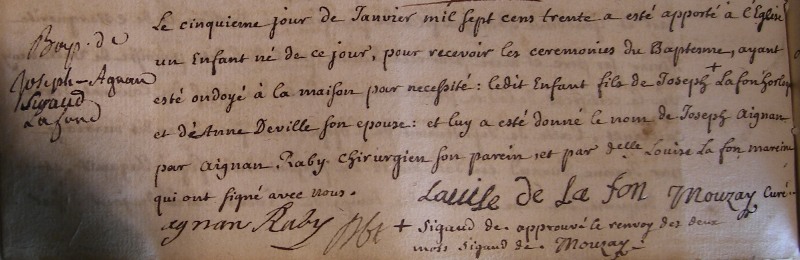 Bap. de
Joseph-Agnan
Sigaud
Lafond
Le cinquieme jour de Janvier mil sept cens trente a esté apporté à l'Eglise
un Enfant né de ce jour, pour recevoir les ceremonies du Baptesme, ayant
esté ondoyé à la maison par necessité : ledit Enfant fils de Joseph + Lafon
et d'Anne Deville son epouse : et luy a esté donné le nom de Joseph Aignan
par Aignan Raby chirurgien son parein, et par delle Louise La fon mareine
qui ont signé avec nous.
Louise de La fon Mouzay Curé
agnan Raby
+ Sigaud de approuvé le renvoy des deux
mots Sigaud de. Mouzay